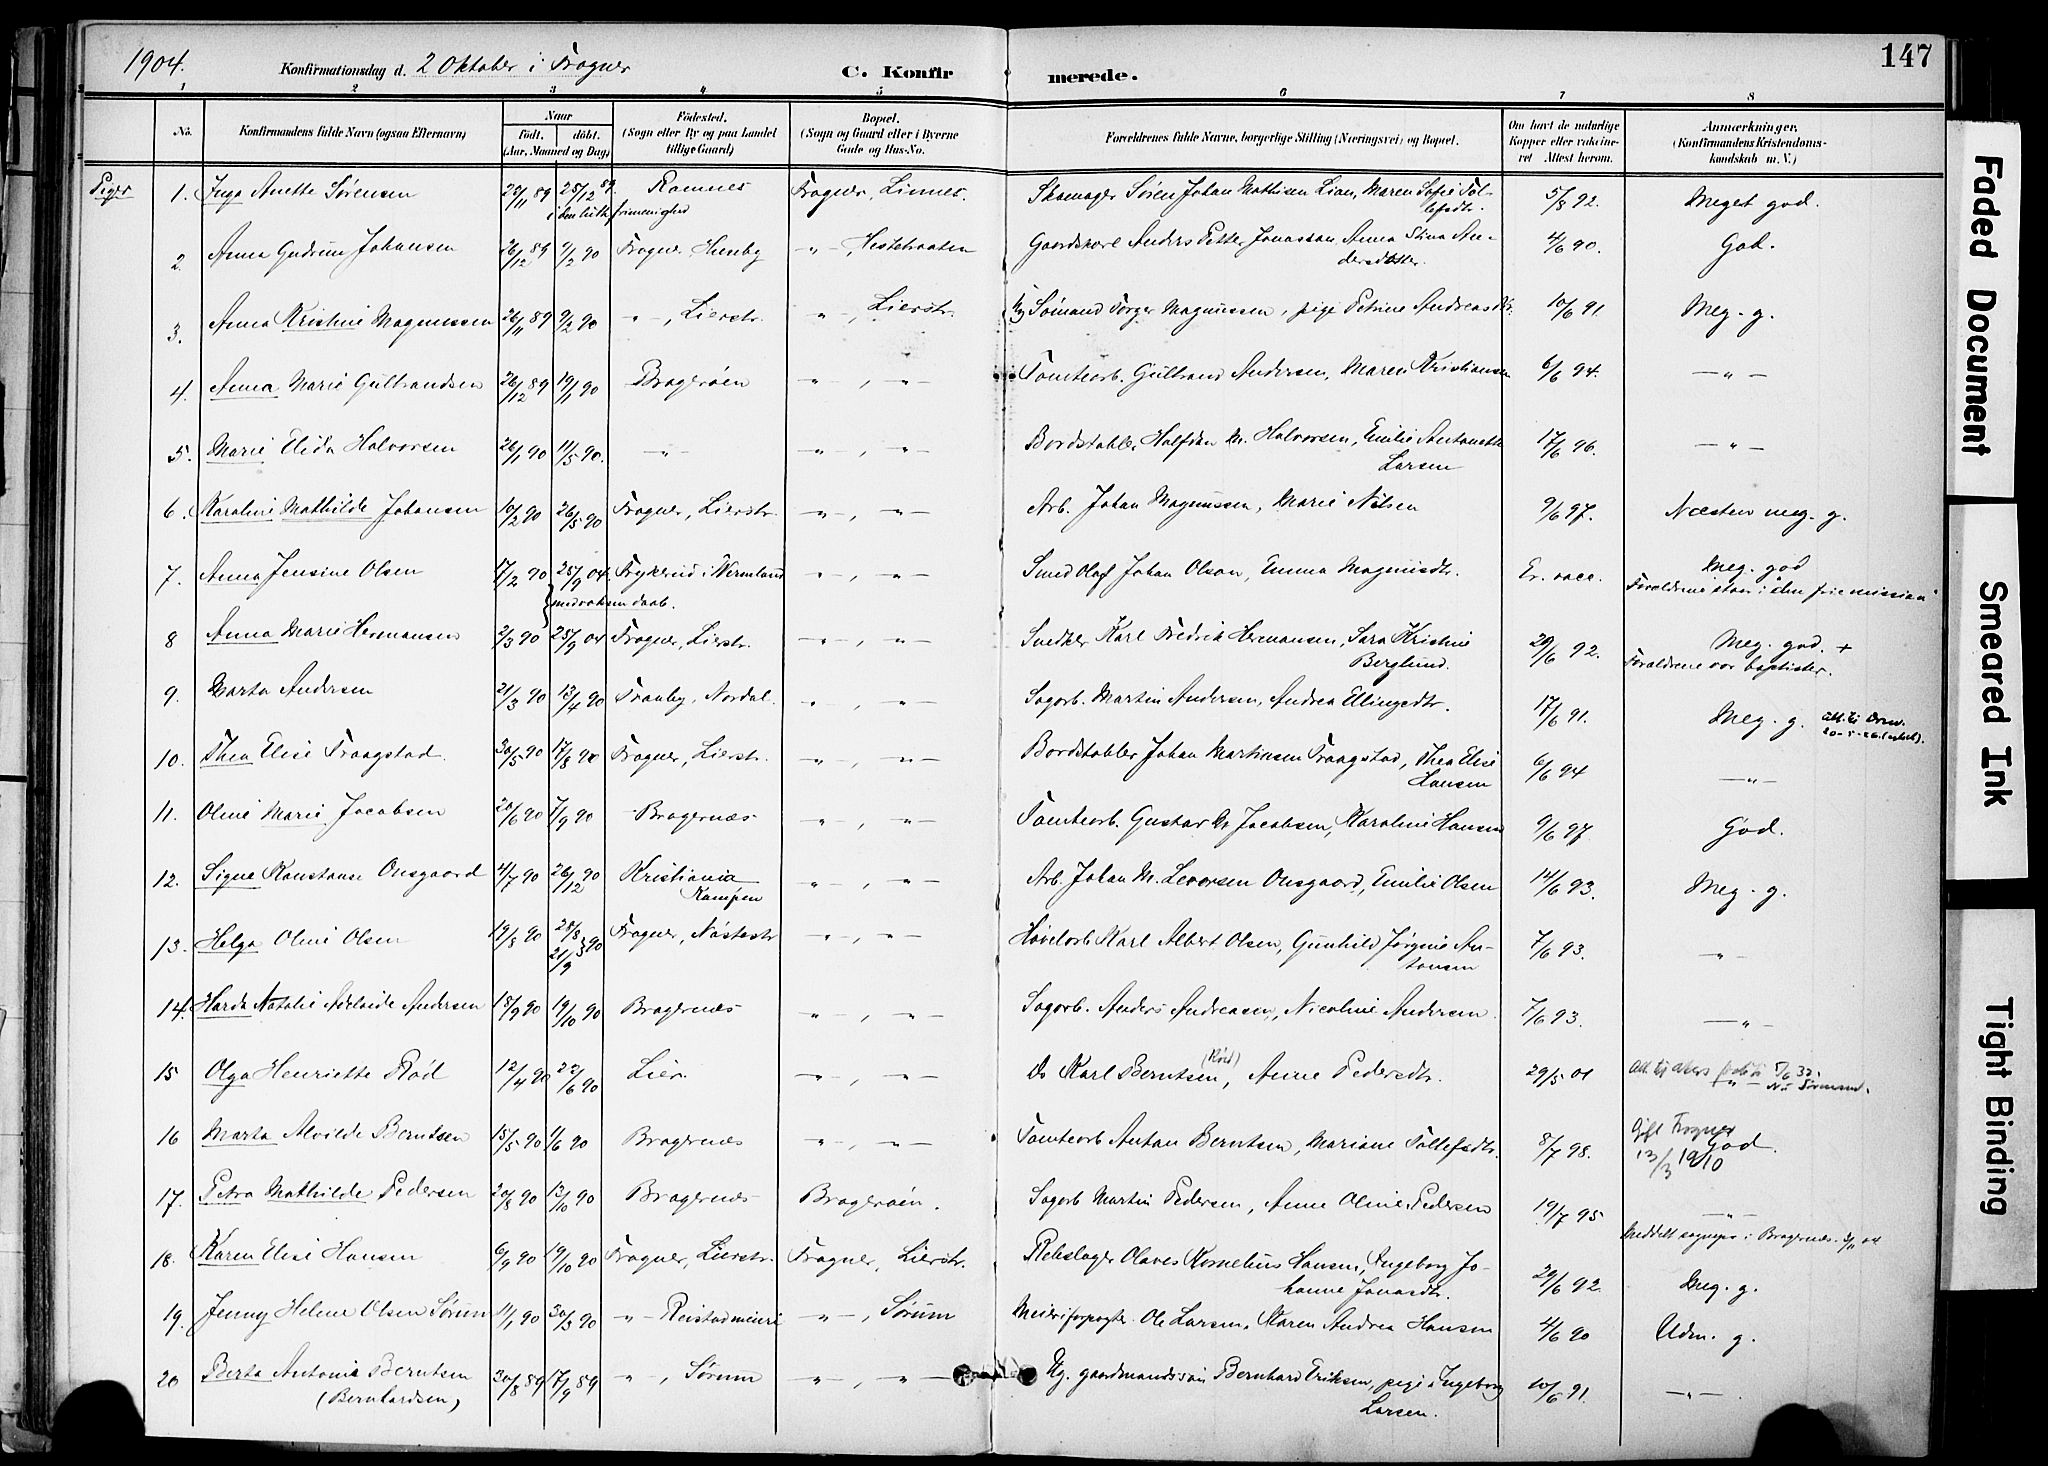 1904.
Konfirmationsdag d. 2 Oktober i Frogner
C. Konfirmerede.
147
1 2 3 4 5 6 7 8
No.
Konfirmandens fulde Navn (ogsaa Efternavn)
Naar
født. døbt.
(Aar, Maaned og Dag)
Fødested.
(Sogn eller By og paa Landet
tillige Gaard)
Bopæl.
(Sogn og Gaard eller i Byerne
Gade og Hus-No.
Forældrenes fulde Navne, borgerlige Stilling (Næringsvei) og Bopæl.
Om havt de naturlige
Kopper eller vaccineret
Attest herom.
Anmærkninger.
(Konfirmandens Kristendomskundskab
m. V.)
Piger
1. Inga Anette Sørensen 22/11 89 25/12 89. Ramnes Frogner, Linnes. Skomager Søren Johan Mathisen Lian, Maren Sofie Tollefsdtr. 5/8 92. Meget god.
i den luth. frimenighed
2. Anna Gudrun Johansen 26/12 89 9/2 90 Frogner Huseby -"-, Hestehaaten Gaardskarl Anders Petter Jonassen Anna Stina Andersdotter. 4/6 90. God.
3. Anna Kristine Magnussen 26/11 89 9/2 90 -"-, Lierstr. -"-, Lierstr. Ug Sømand Torger Magnussen, pige Petrine Andreasdtr. 10/6 91. Meg. g.
4. Anna Marie Gulbrandsen 26/12 89 19/1 90 Bragerøen -"-, -"- Tomtearb. Gulbrand Andersen, Maren Kristiansen 6/6 94. -"-
5. Marie Elida Halvorsen 26/1 90 11/5 90. -"- -"-, -"- Bordstabler Halfdan M. Halvorsen, Emilie Antonette Larsen 17/6 96. -"-
6. Karoline Mathilde Johansen 10/2 90 26/5 90 Frogner, Lierstr. -"-, -"- Arb. Johan Magnussen, Marie Nilsen 9/6 97. Næsten meg. g.
7. Anna Jensine Olsen 17/2 90 25/9 04. Frykerud i Vermland -"-, -"- Smed Olaf Johan Olsen, Emma Magnusdtr. Er vacc. Meg. god
Forældrene staar i "den frie mission"
med voksen daab.
8 Anna Marie Hermansen 2/3 90 25/9 04 Frogner, Lierstr. -"-, -"- Snedker Karl Fredrik Hermansen, Sara Kristine Berglund. 29/6 92. Meg. god. +
Forældrene var baptister.
9. Marta Andersen 21/3 90 13/4 90 Tranby, Nordal. -"-, -"- Sagarb. Martin Andersen, Andrea Elingsdtr. 17/6 91. Meg. g.
10. Thea Elise Fraagstad 30/5 90 17/8 90 Frogner, Lierstr. -"-, -"- Bordstabler Johan Martinsen Fraagstad, Thea Elise Hansen 6/6 94 -"-
11. Oline Marie Jacobsen 20/6 90 7/9 90 Bragernæs -"-, -"- Tomtearb. Gustav M. Jacobsen, Karoline Hansen 9/6 97 God.
12. Signe Konstanse Onsgaard 4/7 90 26/12 90 Kristiania Kampen -"-, -"- Arb. Johan M. Levorsen Onsgaard, Emilie Olsen 14/6 93. Meg. g.
13. Helga Oline Olsen 19/8 90 28/8 21/9 } 90 Frogner, Nøstestr -"-, -"- Høvelarb Karl Albert Olsen, Gunhild Jørgine Antonsen 7/6 93. -"-
14. Harda Natalie Adelaide Andersen 18/9 90 19/10 90 Bragernæs -"-, -"- Sagarb. Anders Andreasen, Nicoline Andersen. 7/6 93. -"-
15 Olga Henriette Rød 12/4 90 22/6 90 Lier. -"-, -"- Do Karl Berntsen (Rød), Anne Pedersdtr. 29/5 01
16 Marta Alvilde Berntsen 15/5 90 1/6 90 Bragernæs -"-, -"- Tomtearb Anton Berntsen, Mariane Tollefsdtr. 8/7 98. God.
Gift Frogner
13/3 1910
17. Petra Mathilde Pedersen 20/8 90 12/10 90 Bragernæs Bragerøen. Sagarb Martin Pedersen, Anne Oline Pedersen 19/7 95 -"-
Meddelt sognepr i Bragernæs.
18. Karen Elise Hansen 6/9 90 19/10 90 Frogner, Lierstr. Frogner, Lierstr. Rebslager Olaves Kornelius Hansen, Ingeborg Johanne Jonasdtr. 29/6 92. Meg. g.
19. Jenny Helene Olsen Sørum 11/1 90 30/3 90 -"- Reistadmeieri -"-, Sørum Meieriforpagter Ole Larsen, Karen Andrea Hansen 4/6 90 Udm. g.
20 Berta Antonie Berntsen 30/8 89 17/9 89 -"-, Sørum -"-, -"- Ug. gaardmandssøn Bernhard Eriksen, pige Ingeborg Larsen. 10/6 91. -"-.
(Bernhardsen)
Faded Document
Smeared Ink
Tight Binding